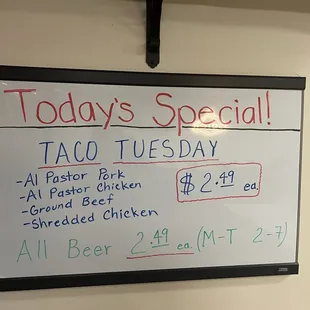 Today's Special!
TACO TUESDAY
-Al Pastor Pork
-Al Pastor Chicken
-Ground Beef
-Shredded Chicken
$2.49 ea.
All Beer 2.49 ea. (M-T 2-7)